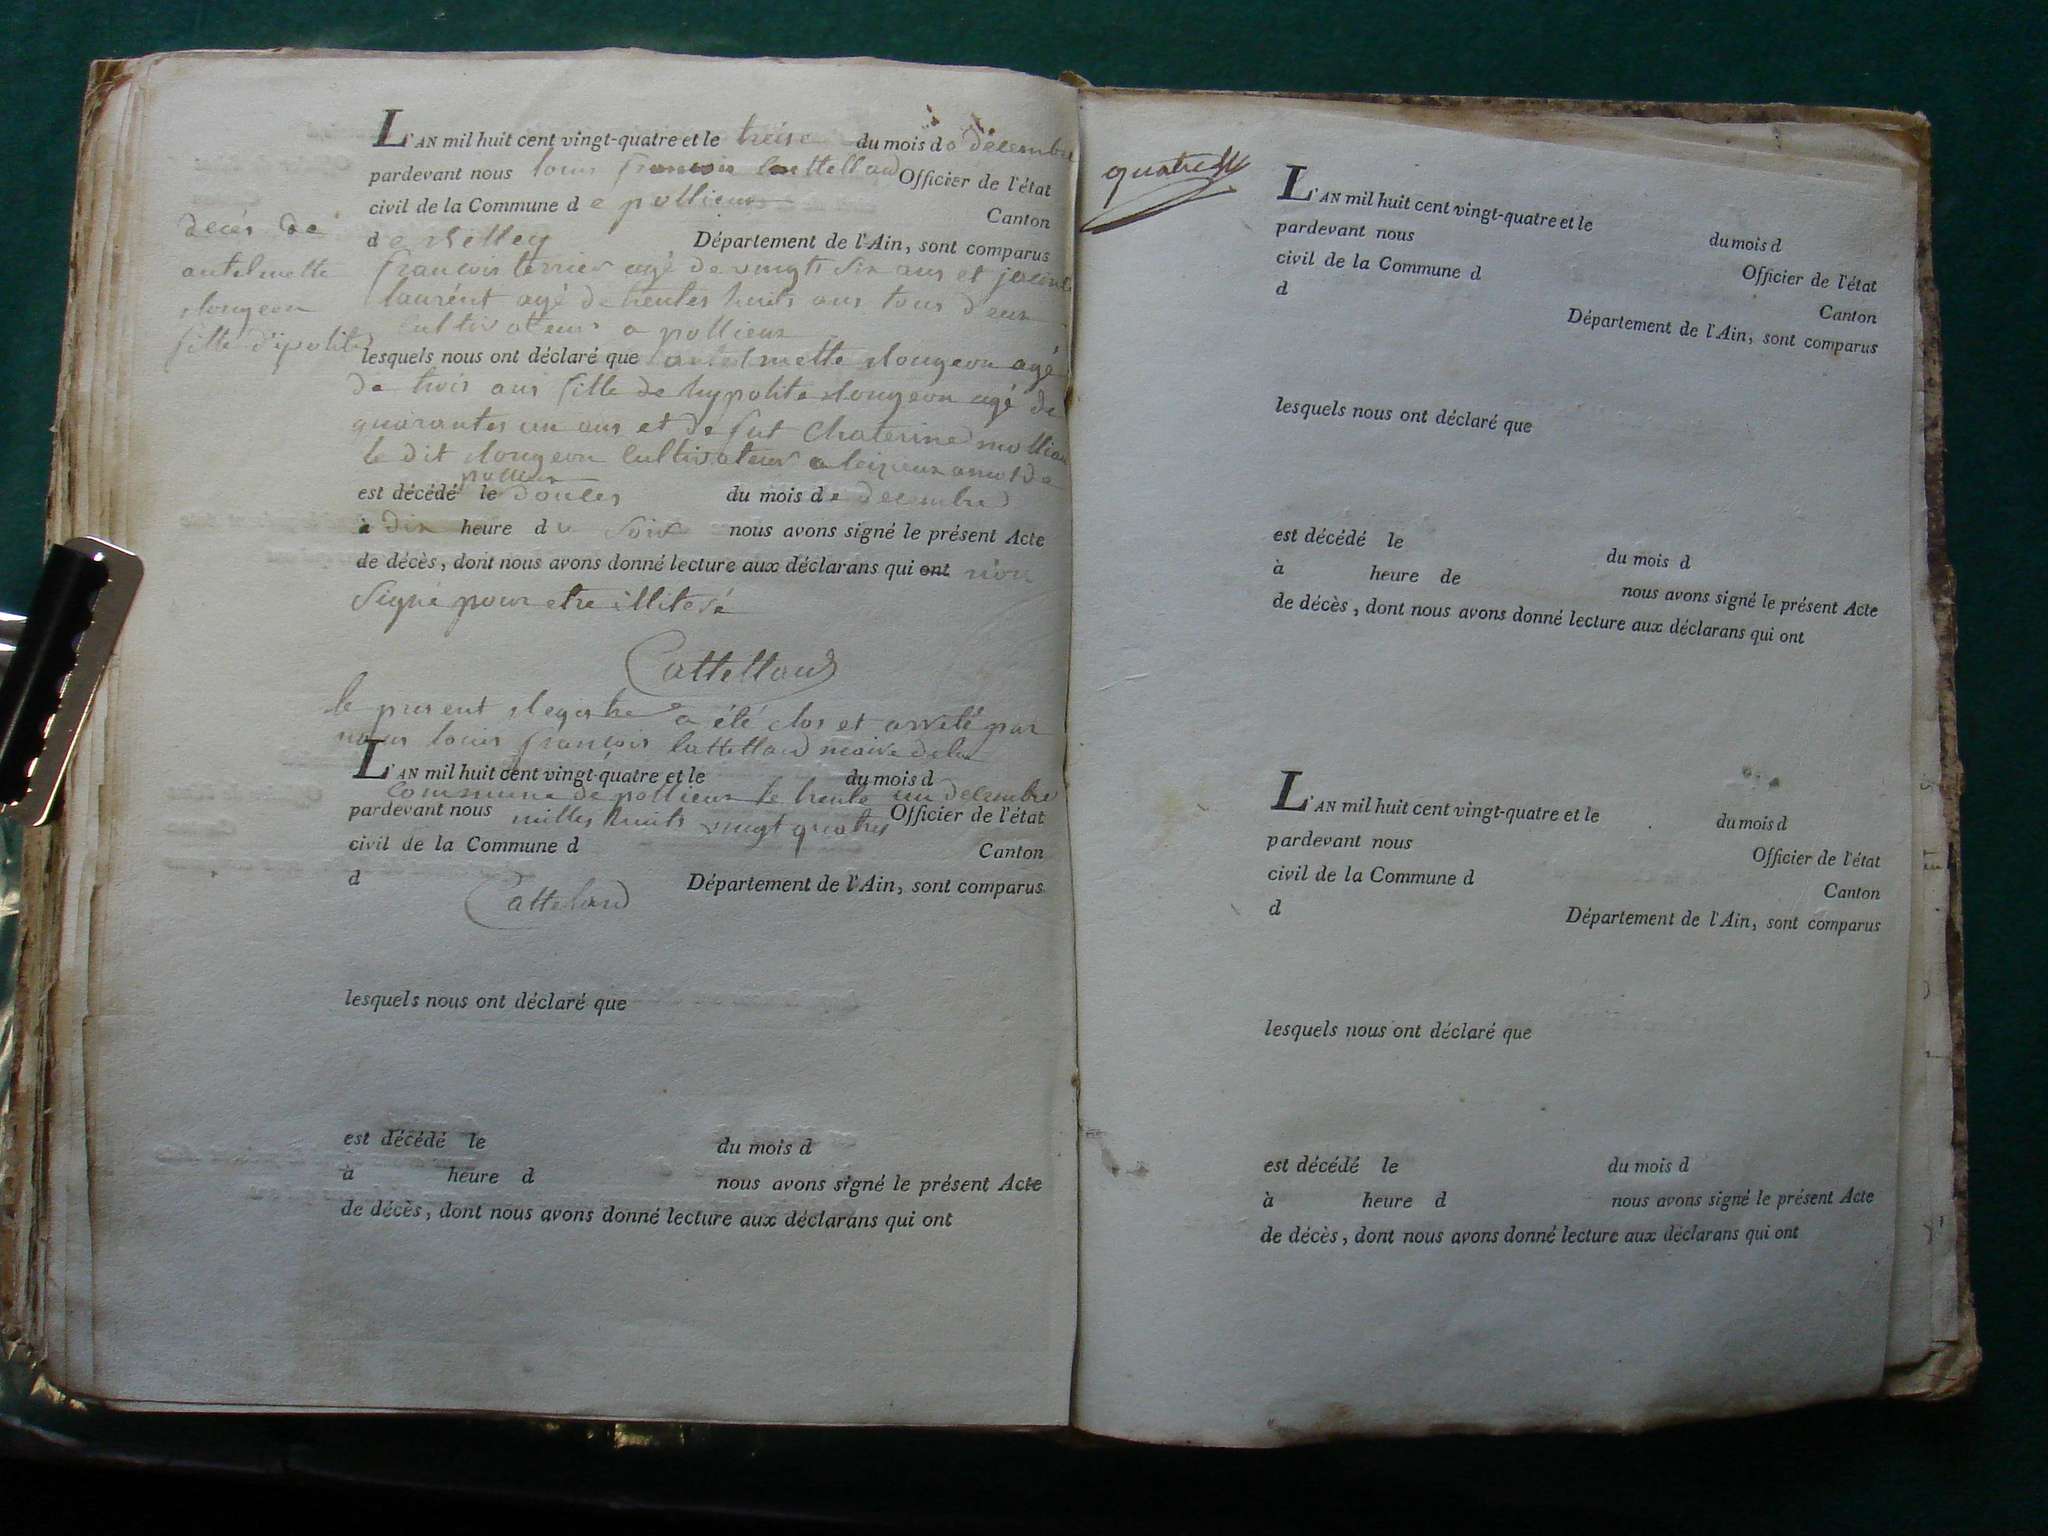 L'AN mil huit cent vingt-quatre et le treise du mois de decembre
pardevant nous louis francois Cattellard Officier de l'état
civil de la Commune de pollieux Canton
de Belley Département de l'Ain, sont comparus
francois terrier agé de vingts six ans et
laurént agé de trentes huits ans tous deux
Cultivateurs a pollieux
décés de
antelmette
fille d'ipolite
lesquels nous ont déclaré que antelmette agé
de trois ans fille de hypolite agé de
quarantes un ans et de fut Chaterine
le dit Cultivateur a
pollieux
est décédé le douses du mois de decembre
à dix heure du soir nous avons signé le présent Acte
de décès, dont nous avons donné lecture aux déclarans qui ont non
Signé pour etre illiteré
Cattellard
le present Registre a été clos et arreté par
nous louis francois Cattellard maire de la
L'AN mil huit cent vingt-quatre et le du mois d
Commune de pollieux le trente un decembre
pardevant nous Officier de l'état
milles huits vingt quatres
civil de la Commune d Canton
d Département de l'Ain, sont comparus
Cattellard
lesquels nous ont déclaré que
est décédé le du mois d
à heure d nous avons signé le présent Acte
de décès, dont nous avons donné lecture aux déclarans qui ont
quatre
L'AN mil huit cent vingt-quatre et le du mois d
pardevant nous Officier de l'état
civil de la Commune d Canton
d Département de l'Ain, sont comparus
lesquels nous ont déclaré que
est décédé le du mois d
à heure de nous avons signé le présent Acte
de décès, dont nous avons donné lecture aux déclarans qui ont
L'AN mil huit cent vingt-quatre et le du mois d
pardevant nous Officier de l'état
civil de la Commune d Canton
d Département de l'Ain, sont comparus
lesquels nous ont déclaré que
est décédé le du mois d
à heure d nous avons signé le présent Acte
de décès, dont nous avons donné lecture aux déclarans qui ont